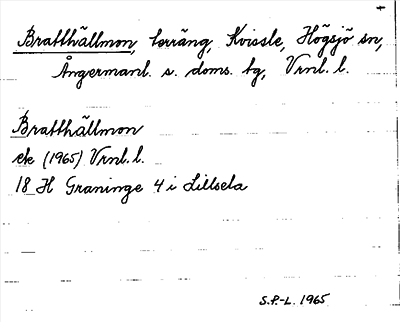 Bratthällmon, terräng, Kvissle, Högsjö sn,
Ångermanl. s. doms. tg, Vrnl. l.
Bratthällmon
ek (1965) Vrnl. l.
18 H Graninge 4 i Lillsela
S.P.-L. 1965